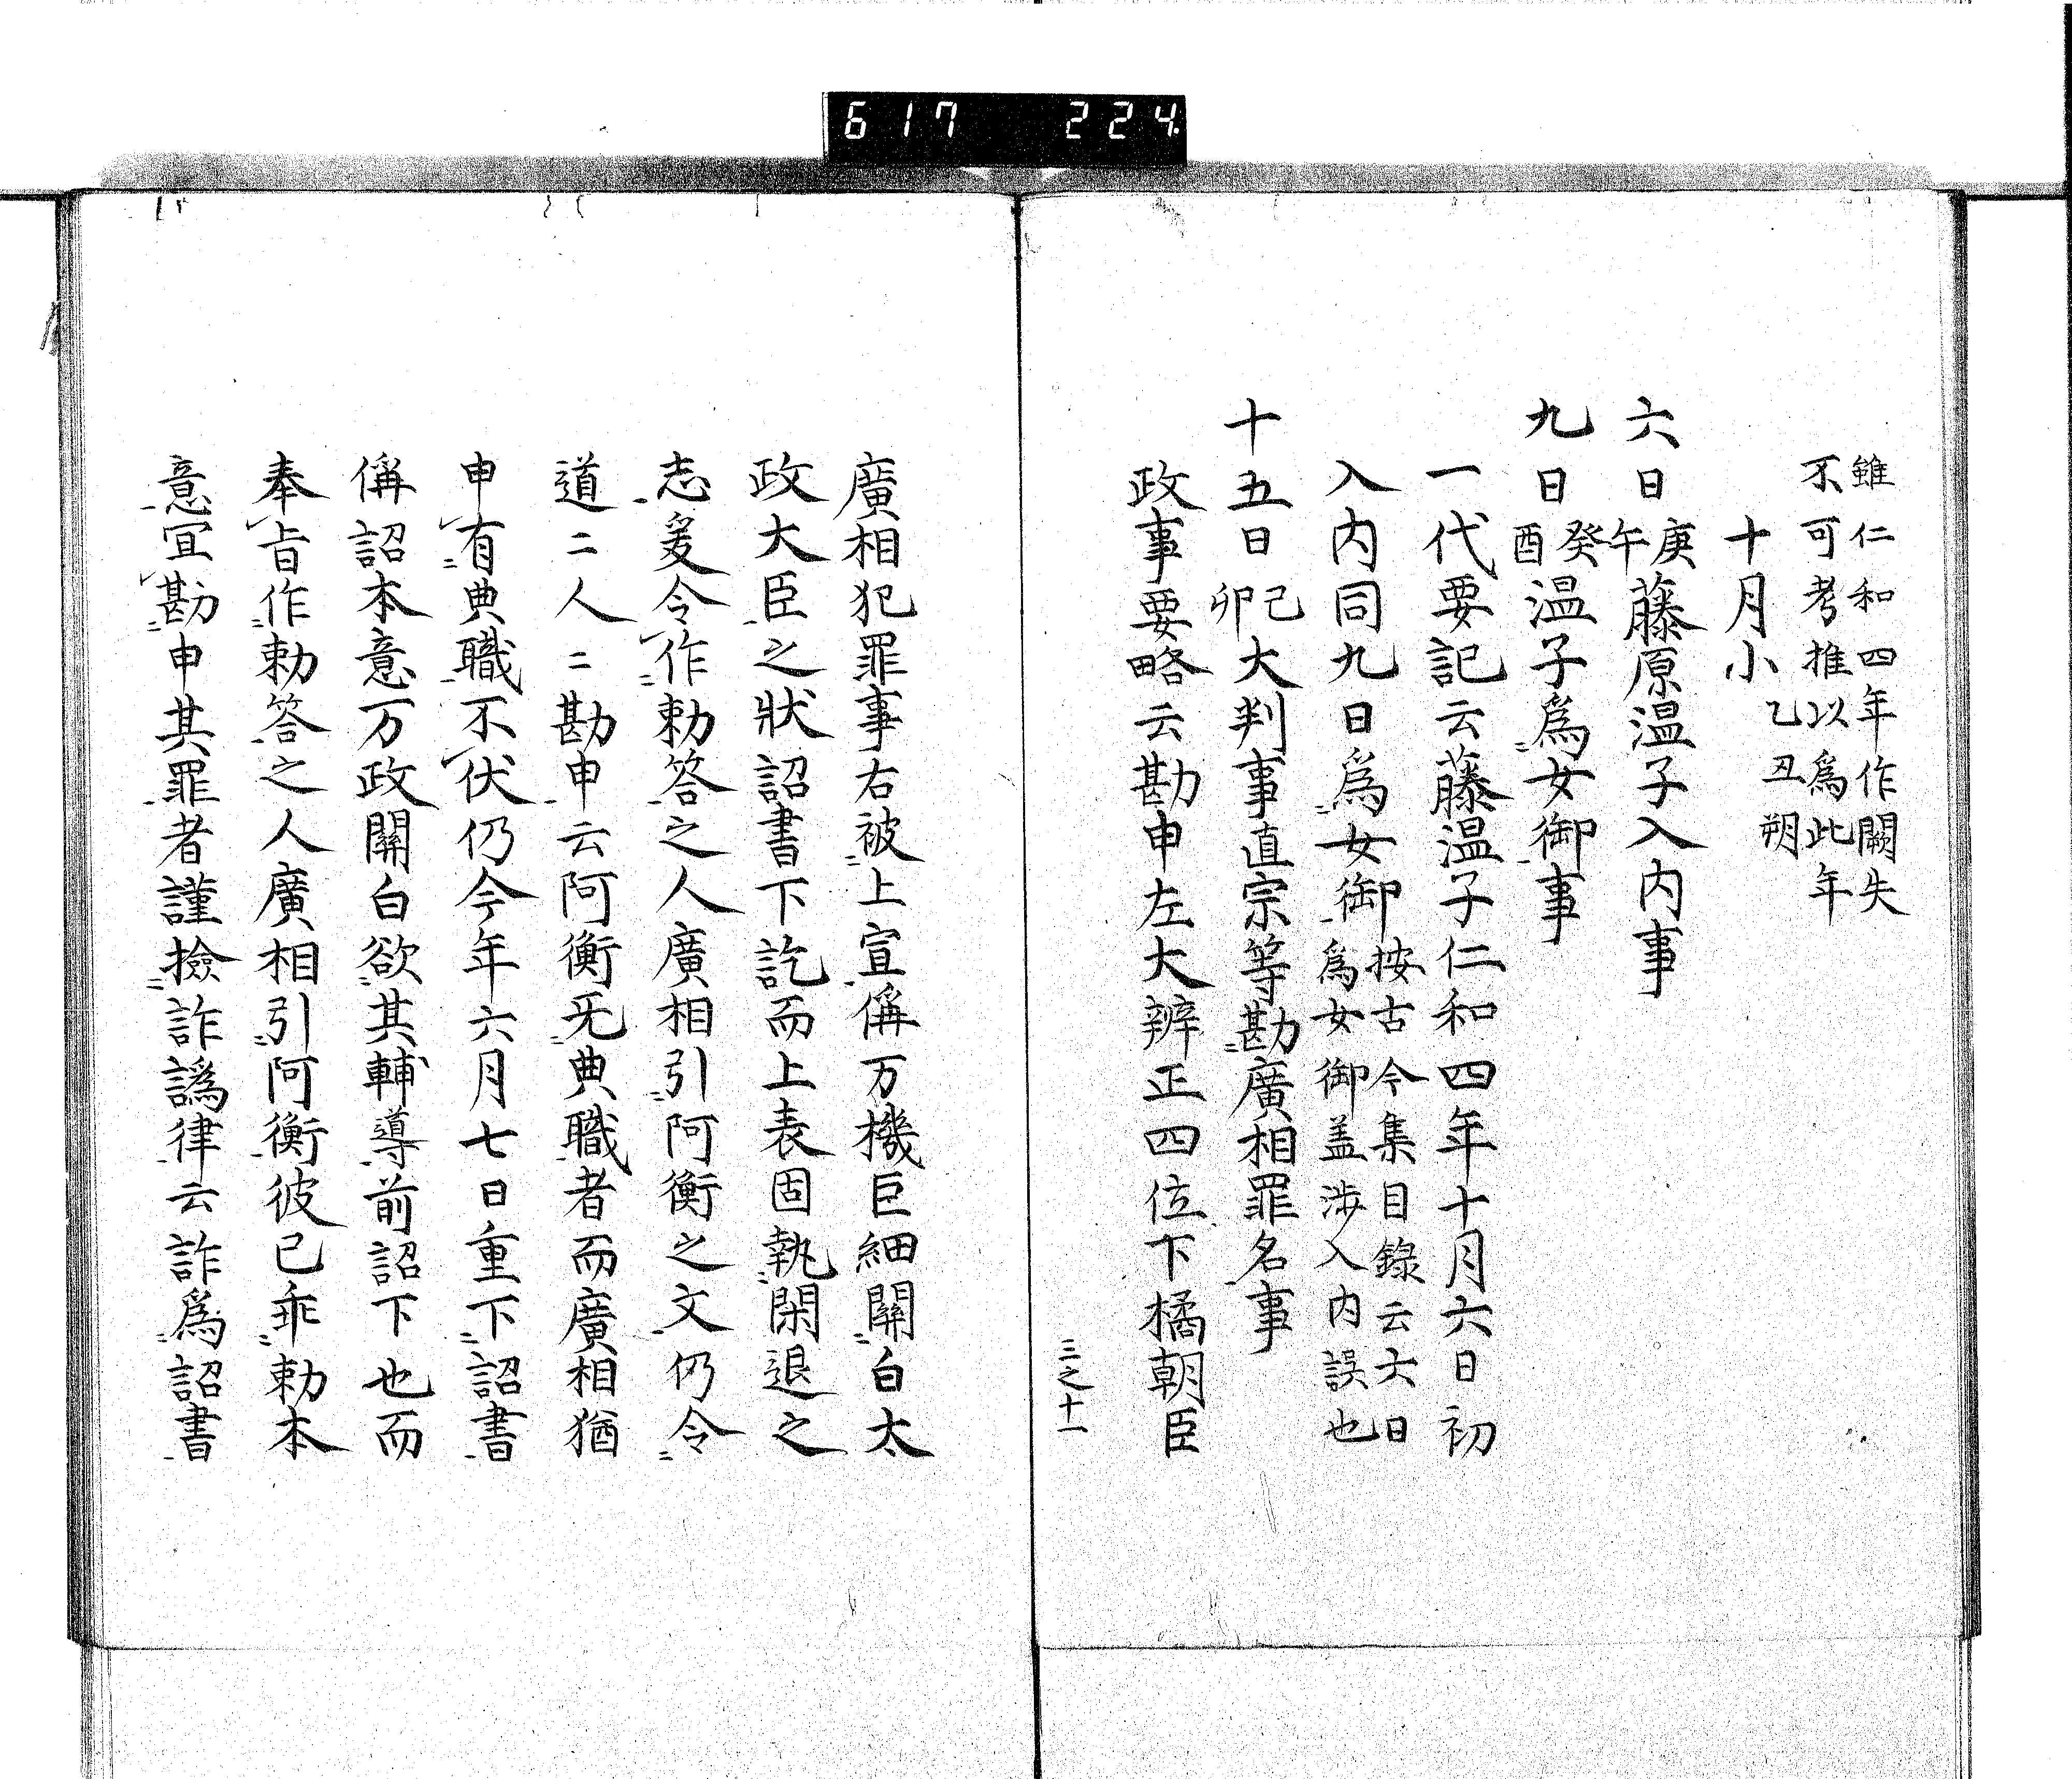 617 224
雖仁和四年作闕失
不可考推以為此年
十月小乙丑朔
六日庚午藤原温子入内事
九日癸酉温子為女御事
一代要記云藤温子仁和四年十月六日初
入内同九日為女御按古今集目録云六日
為女御盖渉入内誤也
十五日己卯大判事直宗等勘廣相罪名事
政事要略云勘申左大辨正四位下橘朝臣
三之十一
廣相犯罪事右被上宣偁万機巨細關白太
政大臣之狀詔書下訖而上表固執閑退之
志爰令作勅答之人廣相引阿衡之文仍令
道二人二勘申云阿衡旡典職者而廣相猶
申有典職不伏仍今年六月七日重下詔書
偁詔本意万政關白欲其輔導前詔下也而
奉旨作勅答之人廣相引阿衡彼已乖勅本
意宜勘申其罪者謹撿詐譌律云詐為詔書